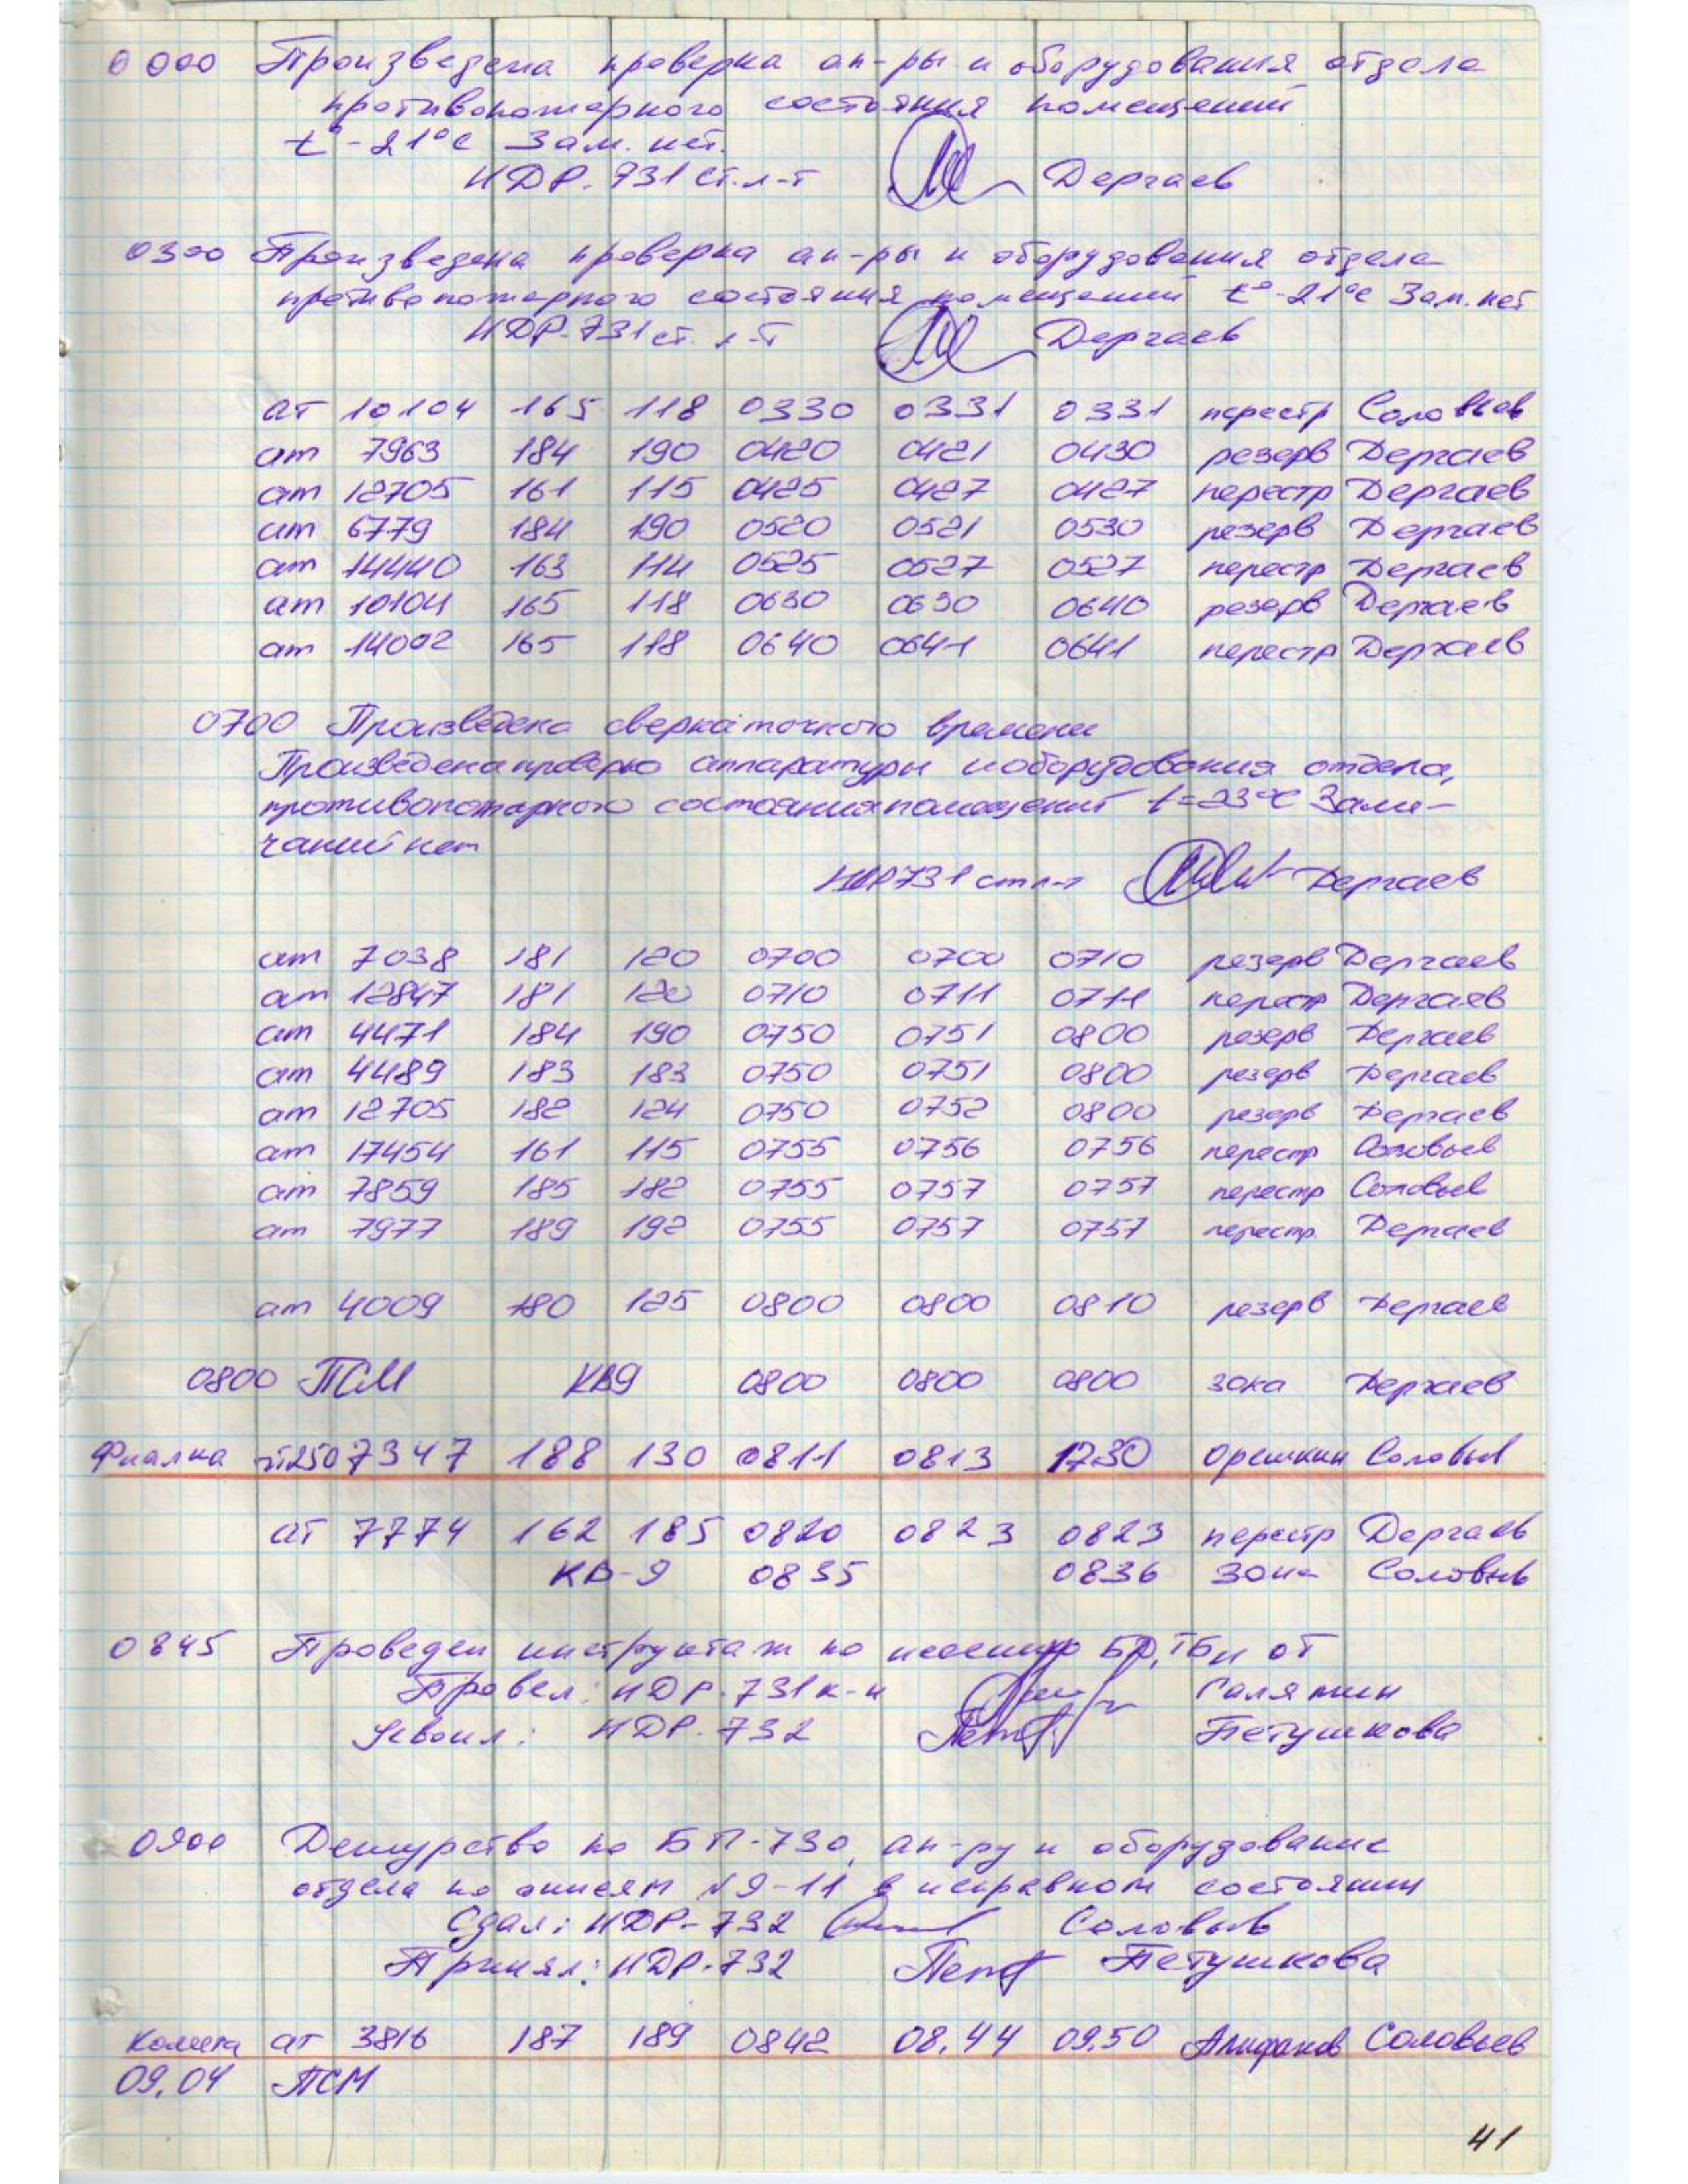 0000 Произведена проверка ап-ры и оборудования отдела
противопожарного состояния помещений
t°-21°С Зам. нет.
НДР-731 ст. л-т Дергаев
0300 Произведена проверка ап-ры и оборудования отдела
противопожарного состояния помещений t°-21°С Зам. нет
НДР-731 ст. л-т Дергаев
ат 10104 165 118 0330 0331 0331 перестр Соловьев
ат 7963 184 190 0420 0421 0430 резерв Дергаев
ат 12705 161 115 0425 0427 0427 перестр Дергаев
ат 6779 184 190 0520 0521 0530 резерв Дергаев
ат 14440 163 114 0525 0527 0527 перестр Дергаев
ат 10104 165 118 0630 0630 0640 резерв Дергаев
ат 14002 165 118 0640 0641 0641 перестр Дергаев
0700 Произведена сверка точного времени
Произведена проверка аппаратуры и оборудования отдела,
противопожарного состояния помещений t=23°С Заме-
чаний нет
НДР 731 ст л-т Дергаев
ат 7038 181 120 0700 0700 0710 резерв Дергаев
ат 12847 181 120 0710 0711 0711 перестр Дергаев
ат 4471 184 190 0750 0751 0800 резерв Дергаев
ат 4489 183 183 0750 0751 0800 резерв Дергаев
ат 12705 182 124 0750 0752 0800 резерв Дергаев
ат 17454 161 115 0755 0756 0756 перестр Соловьев
ат 7859 185 182 0755 0757 0757 перестр Соловьев
ат 7977 189 192 0755 0757 0757 перестр. Дергаев
ат 4009 180 125 0800 0800 0810 резерв Дергаев
0800 ПСМ КВ9 0800 0800 0800 зона Дергаев
Фиалка 7347 188 130 0811 0813 1730 Орешкин Соловьев
ат 7774 162 185 0820 0823 0823 перестр Дергаев
КВ-9 0835 0836 зона Соловьев
0845 Проведен инструктаж по несению БД, ТБ и ОТ
Провел: НДР-731 к-н Галямин
Усвоил: НДР-732 Петушкова
0900 Дежурство по БП-730, ап-ру и оборудование
отдела по описям №9-11 в исправном состоянии
Сдал: НДР-732 Соловьев
Принял: НДР-732 Петушкова
Комета ат 3816 187 189 0842 08.44 09.50 Алифанов Соловьев
09.04 ПСМ
41